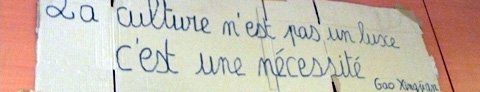 La culture n'est pas un luxe
c'est une nécessité
Gao Xingjian